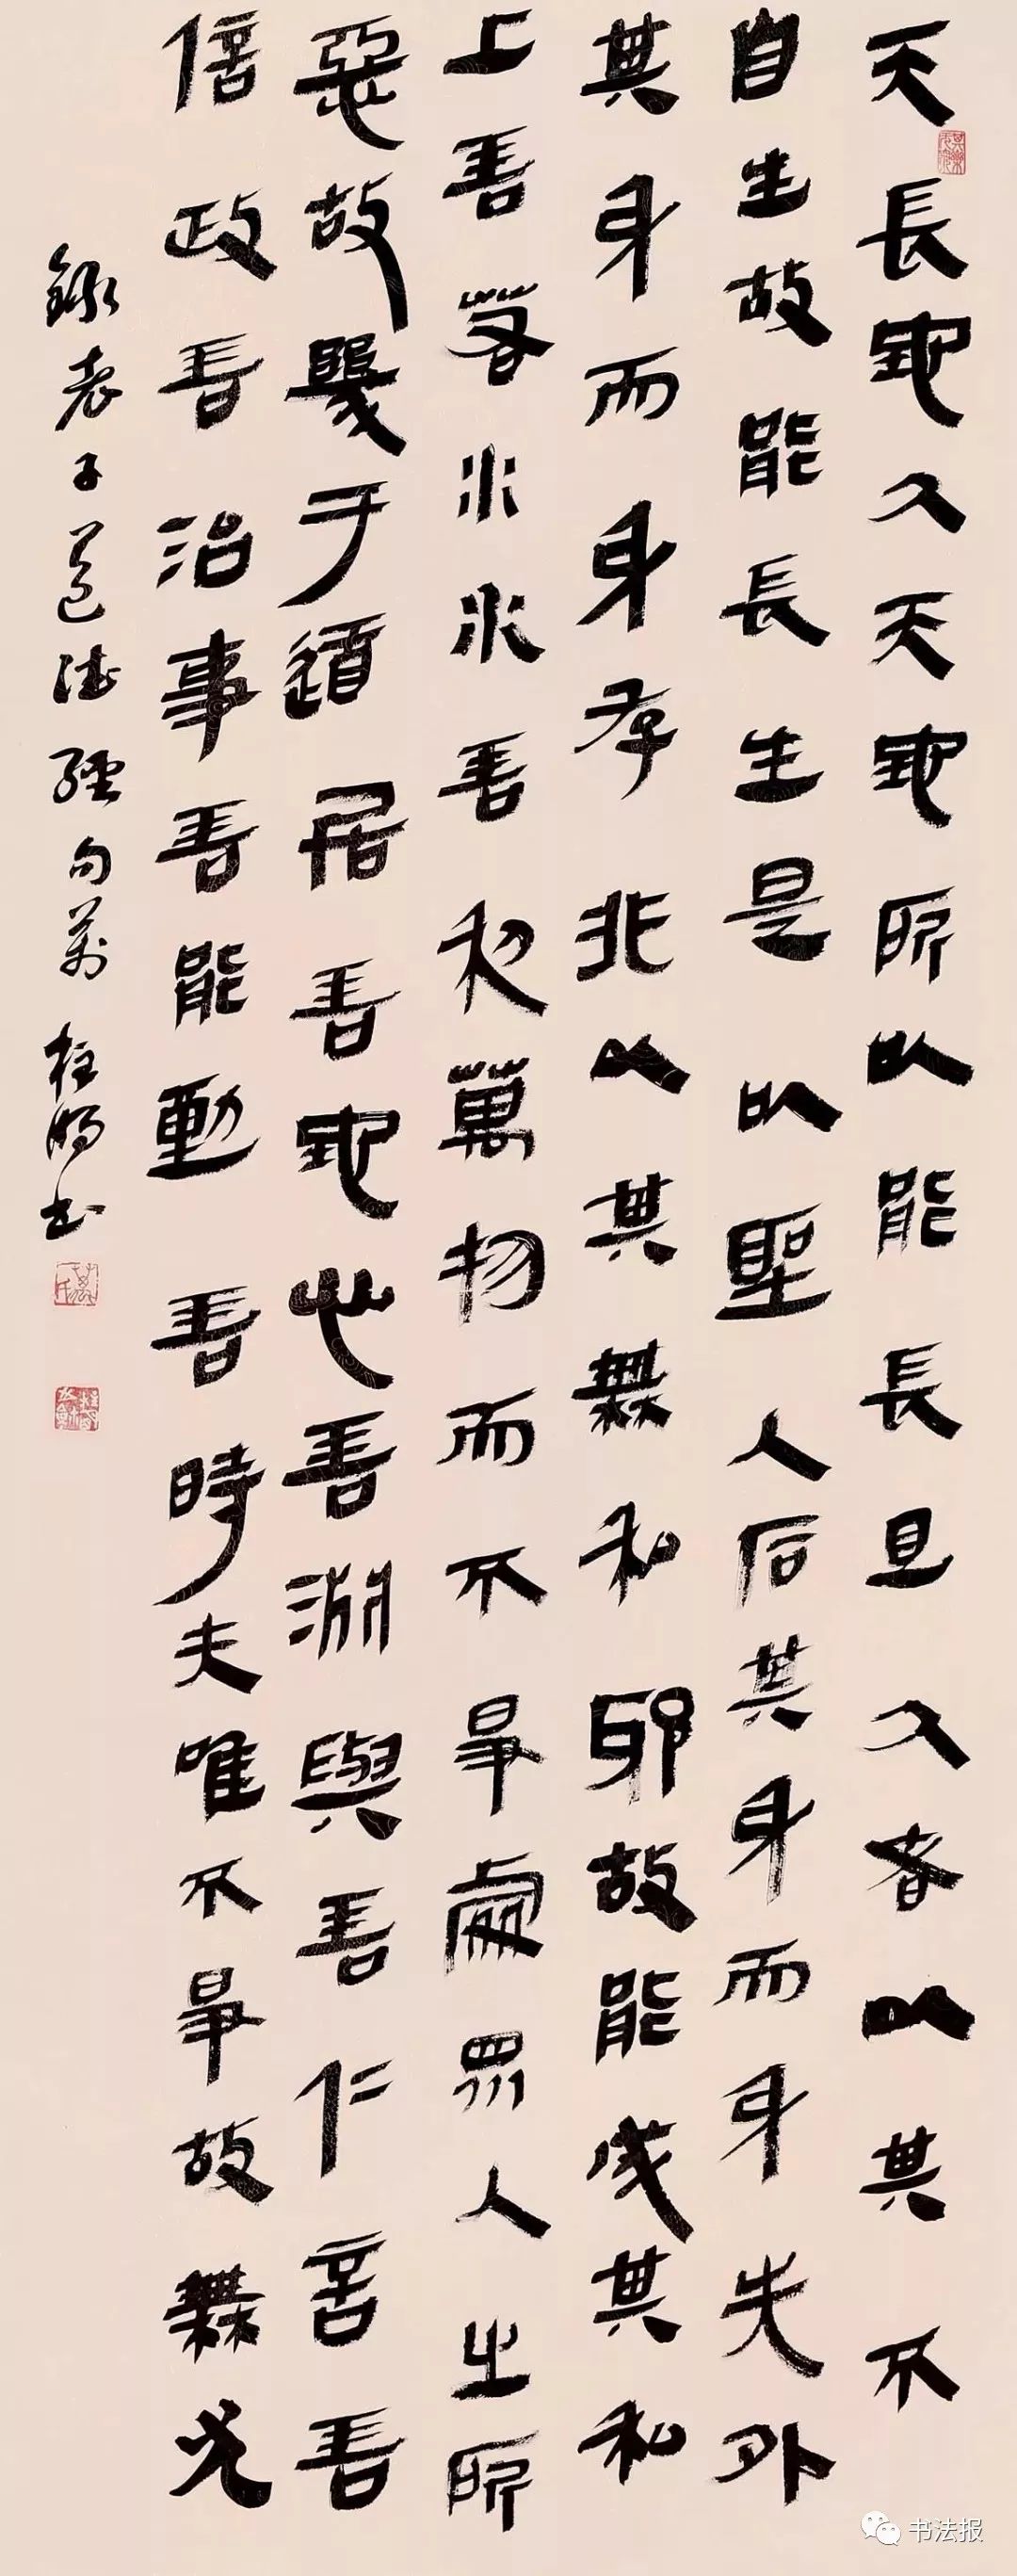 天長地久天地所以能長且久者以其不
自生故能長生是以聖人后其身而身先外
其身而身存非以其無私邪故能成其私
上善若水水善利萬物而不爭處眾人之所
惡故幾于道居善地心善淵與善仁言善
信政善治事善能動善時夫唯不爭故無尤
錄老子道德經句萬桂明書
书法报